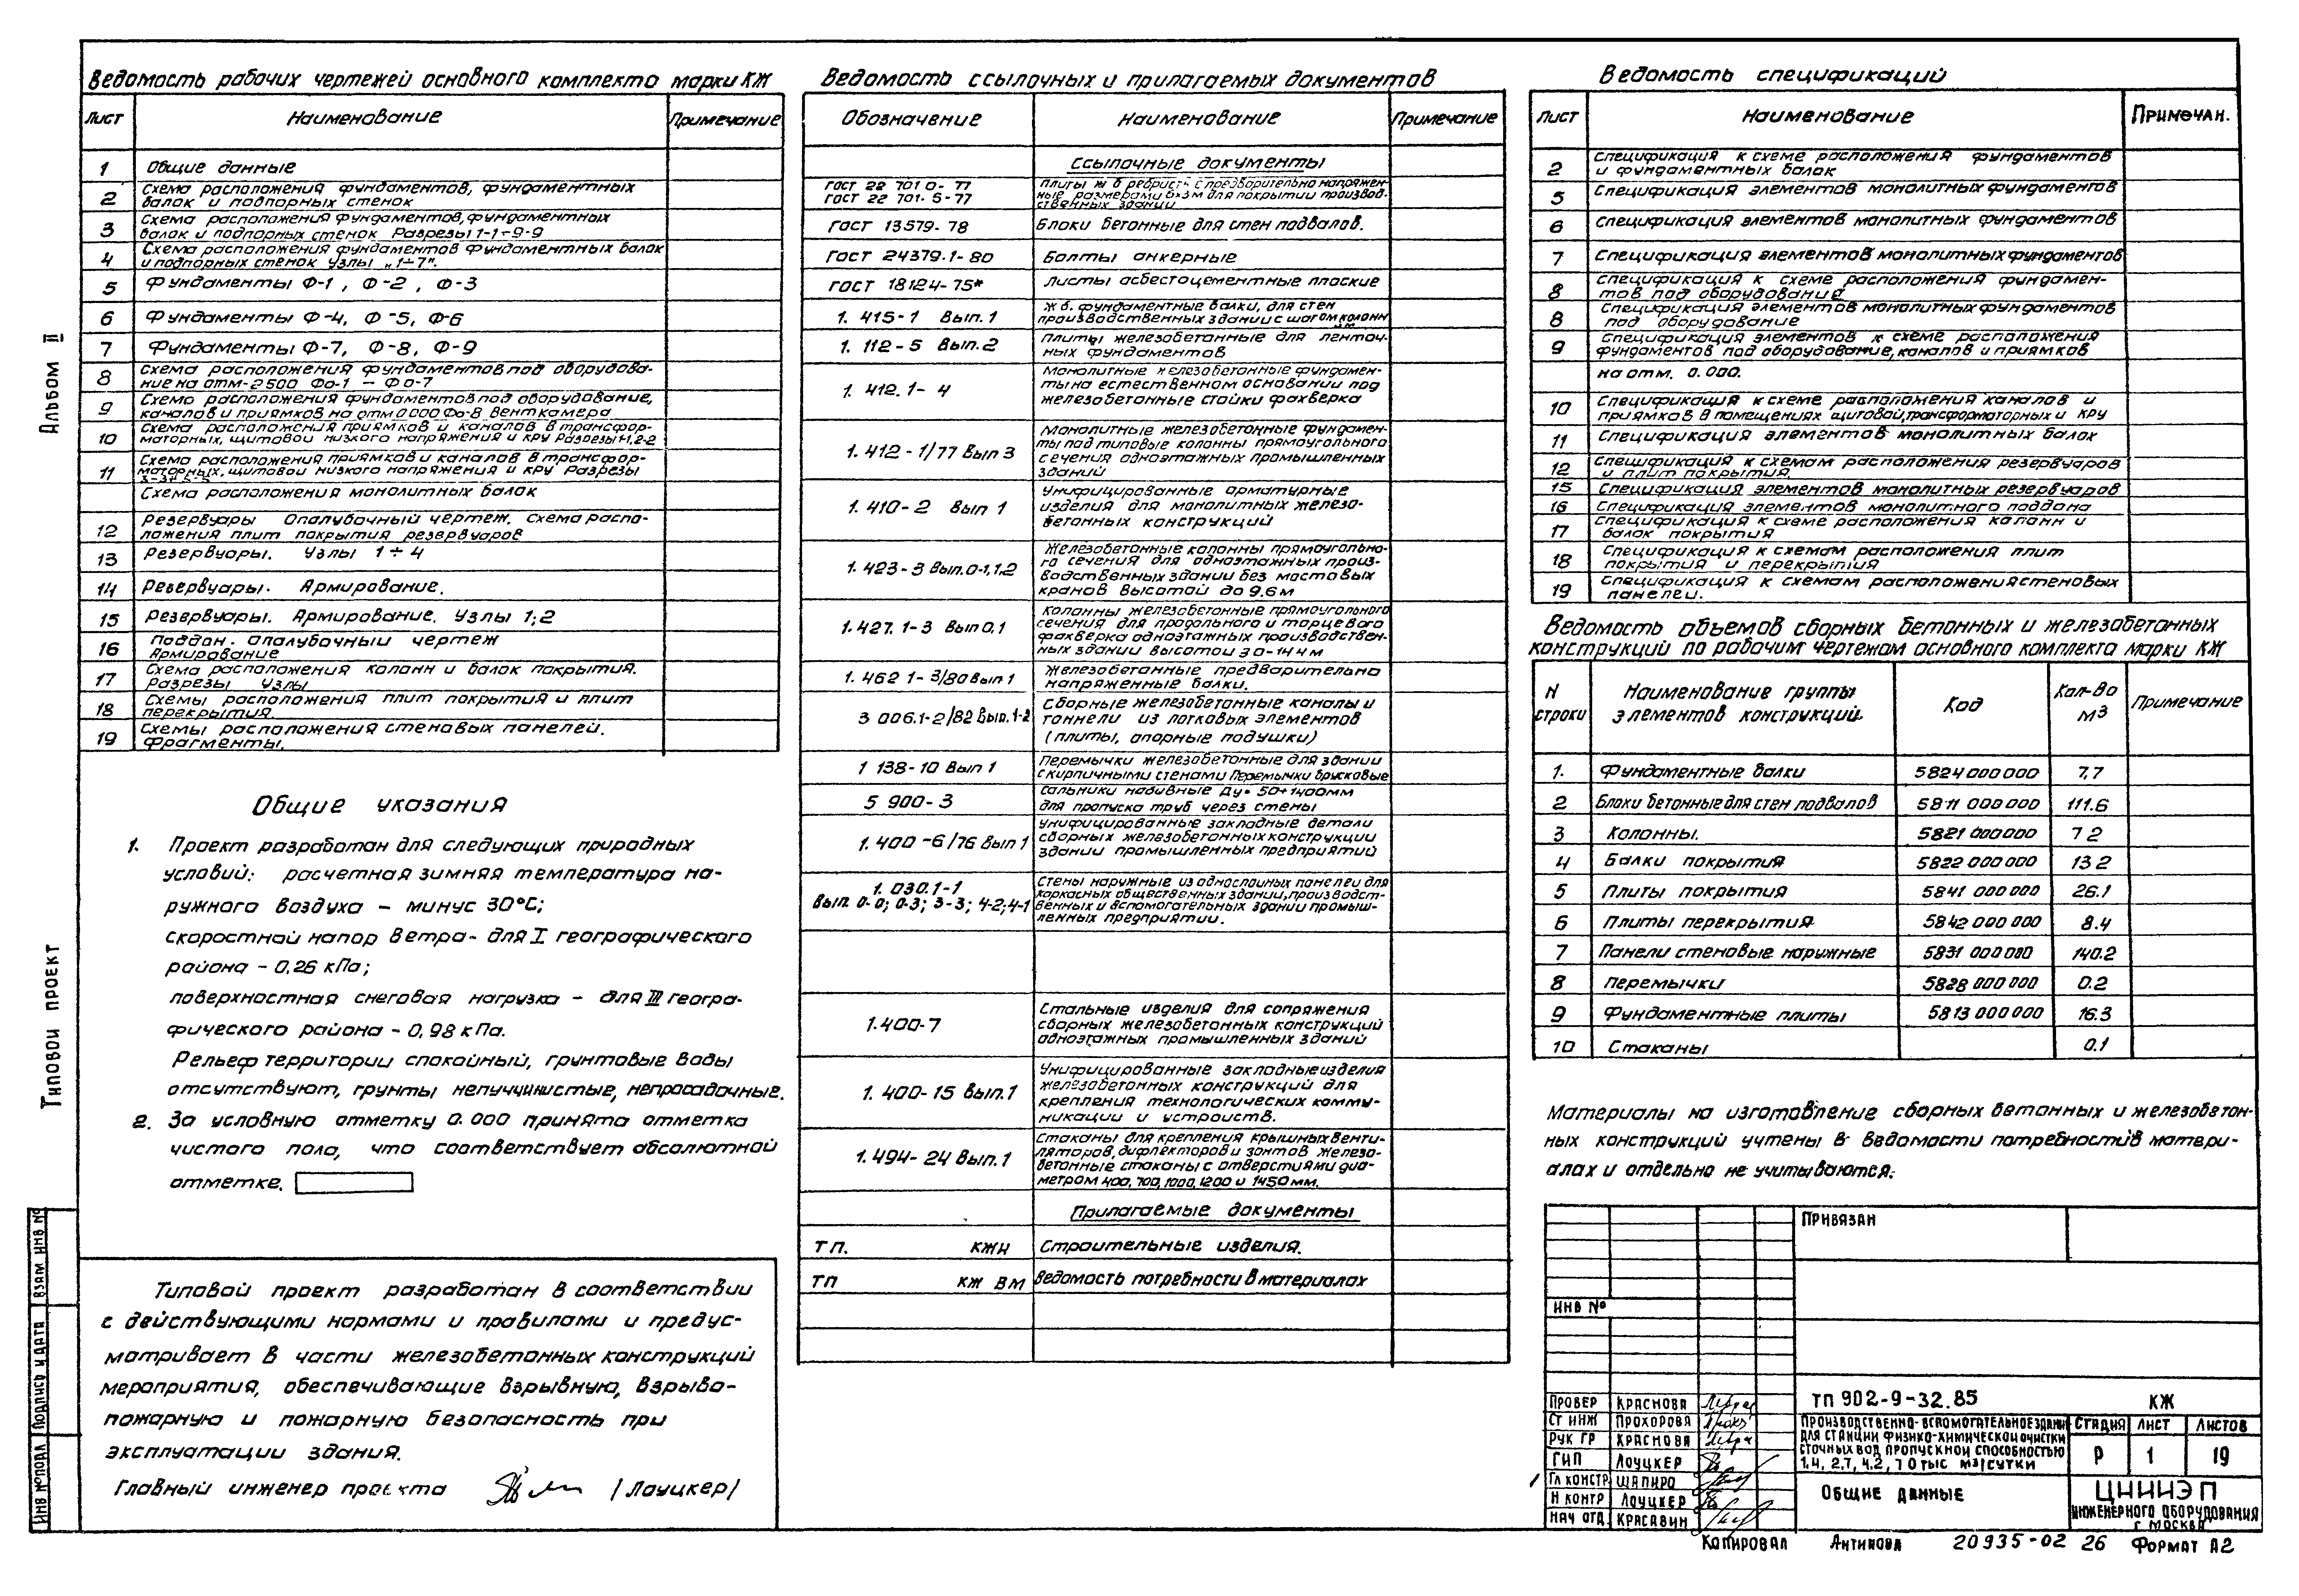 Альбом II
Типовой проект
Ведомость рабочих чертежей основного комплекта марки КЖ
Лист Наименование Примечание
1 Общие данные
2 Схема расположения фундаментов, фундаментных
балок и подпорных стенок
3 Схема расположения фундаментов, фундаментных
балок и подпорных стенок Разрезы 1-1÷9-9
4 Схема расположения фундаментов фундаментных балок
и подпорных стенок Узлы „1÷7".
5 Фундаменты Ф-1, Ф-2, Ф-3
6 Фундаменты Ф-4, Ф-5, Ф-6
7 Фундаменты Ф-7, Ф-8, Ф-9
8 Схема расположения фундаментов под оборудова-
ние на отм-2500 Фо-1 — Фо-7
9 Схема расположения фундаментов под оборудование,
каналов и приямков на отм 0000 Фо-8 Венткамера
10 Схема расположения приямков и каналов в трансфор-
маторных, щитовой низкого напряжения и кру Разрезы 1-1, 2-2
11 Схема расположения приямков и каналов в трансфор-
маторных, щитовой низкого напряжения и кру Разрезы
3-3÷5-5
Схема расположения монолитных балок
12 Резервуары Опалубочный чертеж. Схема распо-
ложения плит покрытия резервуаров
13 Резервуары. Узлы 1÷4
14 Резервуары. Армирование.
15 Резервуары. Армирование. Узлы 1; 2
16 Поддон. Опалубочный чертеж
Армирование
17 Схема расположения колонн и балок покрытия.
Разрезы Узлы
18 Схемы расположения плит покрытия и плит
перекрытия.
19 Схемы расположения стеновых панелей.
Фрагменты.
Общие указания
1. Проект разработан для следующих природных
условий: расчетная зимняя температура на-
ружного воздуха – минус 30°С;
скоростной напор ветра - для I географического
района – 0,26 кПа;
поверхностная снеговая нагрузка – для III геогра-
фического района – 0,98 кПа.
Рельеф территории спокойный, грунтовые воды
отсутствуют, грунты непучинистые, непросадочные.
2. За условную отметку 0.000 принята отметка
чистого пола, что соответствует абсолютной
отметке.
Типовой проект разработан в соответствии
с действующими нормами и правилами и предус-
матривает в части железобетонных конструкций
мероприятия, обеспечивающие взрывную, взрыво-
пожарную и пожарную безопасность при
эксплуатации здания.
Главный инженер проекта /Лоуцкер/
Взам инв №
Подпись и дата
Инв № подл
Ведомость ссылочных и прилагаемых документов
Обозначение Наименование Примечание
Ссылочные документы
ГОСТ 22 701 0-77
ГОСТ 22 701. 5-77
Плиты ж б ребрист с предварительно напряжен-
ные размерами 6х3м для покрытий производ-
ственных зданий
ГОСТ 13579-78 Блоки бетонные для стен подвалов.
ГОСТ 24379.1-80 Болты анкерные
ГОСТ 18124-75* Листы асбестоцементные плоские
1. 415-1 Вып. 1 Ж б. фундаментные балки, для стен
производственных зданий с шагом колонн
1. 112-5 Вып. 2 Плиты железобетонные для ленточ-
ных фундаментов
1. 412.1-4 Монолитные железобетонные фундамен-
ты на естественном основании под
железобетонные стойки фахверка
1. 412-1/77 Вып 3 Монолитные железобетонные фундамен-
ты под типовые колонны прямоугольного
сечения одноэтажных промышленных
зданий
1. 410-2 Вып 1 Унифицированные арматурные
изделия для монолитных железо-
бетонных конструкций
1. 423-3 Вып. 0-1, 1, 2 Железобетонные колонны прямоугольно-
го сечения для одноэтажных произ-
водственных зданий без мостовых
кранов высотой до 9.6м
1. 427. 1-3 Вып 0,1 Колонны железобетонные прямоугольного
сечения для продольного и торцевого
фахверка одноэтажных производствен-
ных зданий высотой 3 0-14 4м
1. 462 1-3/80 Вып 1 Железобетонные предварительно
напряженные балки.
3 006.1-2/82 Вып. 1-2 Сборные железобетонные каналы и
тоннели из лотковых элементов
(плиты, опорные подушки)
1 138-10 Вып 1 Перемычки железобетонные для зданий
с кирпичными стенами Перемычки брусковые
5 900-3 Сальники набивные Ду= 50÷1400мм
для пропуска труб через стены
1. 400-6/76 Вып 1 Унифицированные закладные детали
сборных железобетонных конструкций
зданий промышленных предприятий
1. 030.1-1
Вып. 0-0; 0-3; 3-3; 4-2; 4-1
Стены наружные из однослойных панелей для
каркасных общественных зданий, производст-
венных и вспомогательных зданий промыш-
ленных предприятий.
1.400-7 Стальные изделия для сопряжения
сборных железобетонных конструкций
одноэтажных промышленных зданий
1. 400-15 Вып. 1 Унифицированные закладные изделия
железобетонных конструкций для
крепления технологических комму-
никации и устройств.
1. 494-24 Вып. 1 Стаканы для крепления крышных венти-
ляторов, дифлекторов и зонтов железо-
бетонные стаканы с отверстиями диа-
метром 400, 700, 1000, 1200 и 1450 мм.
Прилагаемые документы
ТП. КЖИ Строительные изделия.
ТП КЖ ВМ Ведомость потребности в материалах
Ведомость спецификаций
Лист Наименование Примечан.
2 Спецификация к схеме расположения фундаментов
и фундаментных балок
5 Спецификация элементов монолитных фундаментов
6 Спецификация элементов монолитных фундаментов
7 Спецификация элементов монолитных фундаментов
8 Спецификация к схеме расположения фундамен-
тов под оборудование
8 Спецификация элементов монолитных фундаментов
под оборудование
9 Спецификация элементов к схеме расположения
фундаментов под оборудование, каналов и приямков
на отм. 0.000.
10 Спецификация к схеме расположения каналов и
приямков в помещениях щитовой, трансформаторных и кру
11 Спецификация элементов монолитных балок
12 Спецификация к схемам расположения резервуаров
и плит покрытия.
15 Спецификация элементов монолитных резервуаров
16 Спецификация элементов монолитного поддона
17 Спецификация к схеме расположения колонн и
балок покрытия
18 Спецификация к схемам расположения плит
покрытия и перекрытия
19 Спецификация к схемам расположения стеновых
панелей.
Ведомость объемов сборных бетонных и железобетонных
конструкций по рабочим чертежам основного комплекта марки КЖ
N строки Наименование группы элементов конструкций Код Кол-во м3 Примечание
1. Фундаментные балки 5824 000 000 7.7
2 Блоки бетонные для стен подвалов 5811 000 000 111.6
3 Колонны. 5821 000 000 7 2
4 Балки покрытия 5822 000 000 13 2
5 Плиты покрытия 5841 000 000 26.1
6 Плиты перекрытия 5842 000 000 8.4
7 Панели стеновые наружные 5831 000 000 140.2
8 Перемычки 5828 000 000 0.2
9 Фундаментные плиты 5813 000 000 16.3
10 Стаканы 0.1
Материалы на изготовление сборных бетонных и железобетон-
ных конструкций учтены в ведомости потребности в матери-
алах и отдельно не учитываются.
Привязан
Инв №
Провер Краснова
Ст инж Прохорова
Рук гр Краснова
Гип Лоуцкер
Гл констр Шапиро
Н контр Лоуцкер
Нач отд. Красавин
ТП 902-9-32.85 КЖ
Производственно-вспомогательное здание
для станции физико-химической очистки
сточных вод пропускной способностью
1.4, 2.7, 4.2, 7 0 тыс м3/сутки
Стадия Лист Листов
Р 1 19
Общие данные
ЦНИИЭП
инженерного оборудования
г Москва
Копировал Антипова 20935-02 26 Формат А2